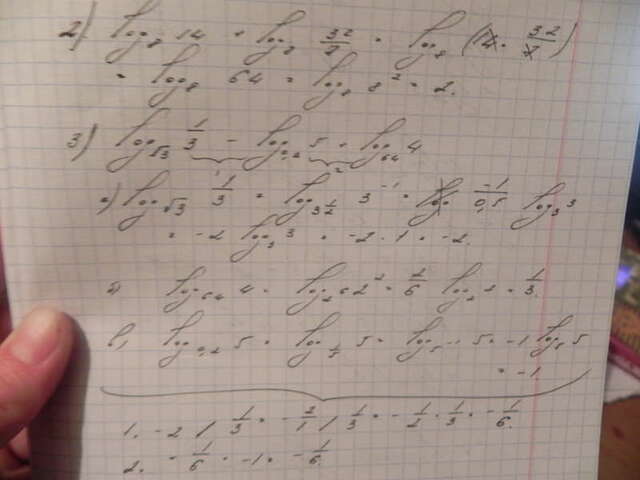 2) log₈ 14 + log₈ 32/7 = log₈ (14 · 32/7)
= log₈ 64 = log₈ 8² = 2.
3) log_√3 1/3 - log_0,2 5 · log_64 4
а) log_√3 1/3 = log_3^1/2 3⁻¹ = -1/0,5 log₃ 3
= -2 log₃ 3 = -2 · 1 = -2.
б) log_64 4 = log_2^6 2² = 2/6 log₂ 2 = 1/3.
в) log_0,2 5 = log_1/5 5 = log_5^-1 5 = -1 log₅ 5
= -1.
1. -2 / 1/3 = -2/1 / 1/3 = -1/2 · 1/3 = -1/6.
2. -1/6 · -1 = -1/6.